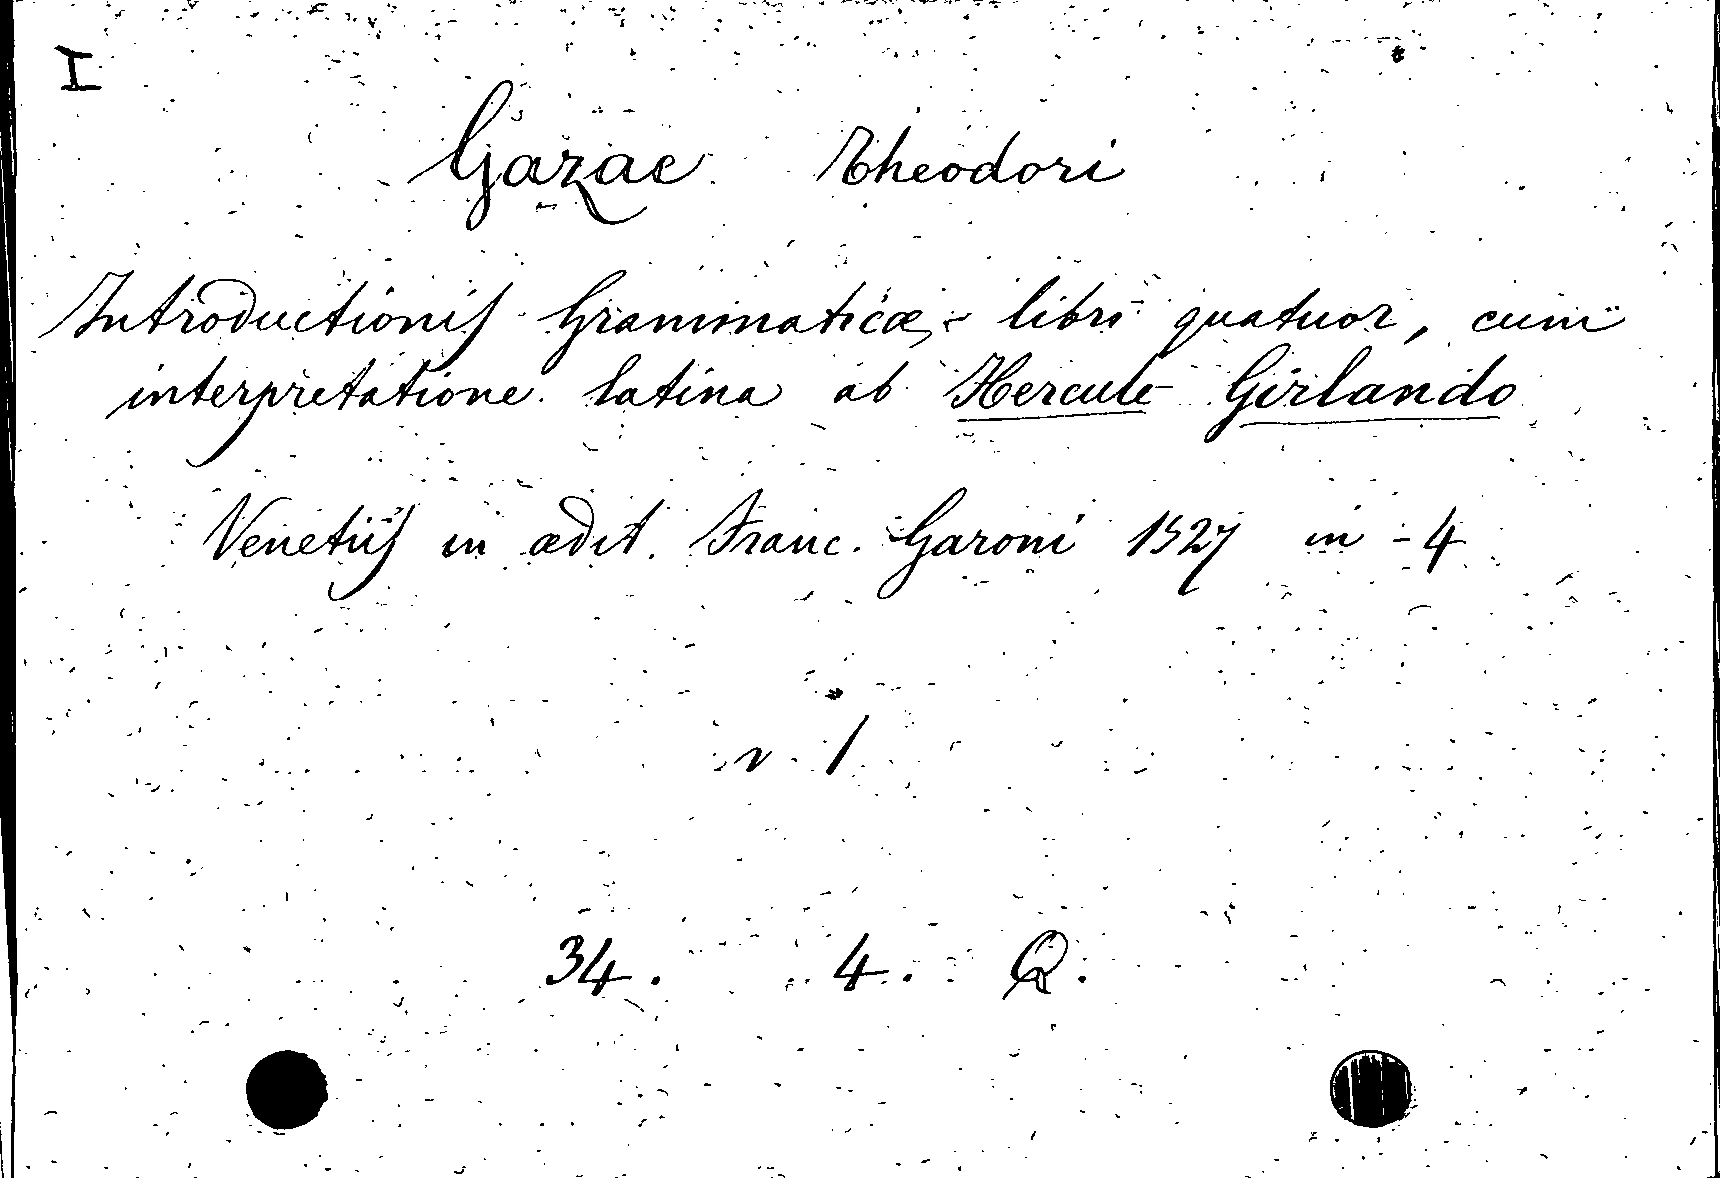 I
Gazae Theodori
Introductionis Grammaticæ libri quatuor, cum
interpretatione latina ab Hercule Girlando
Venetiis in ædit. Franc. Garoni 1527 in-4
v. 1
34. 4. Q.